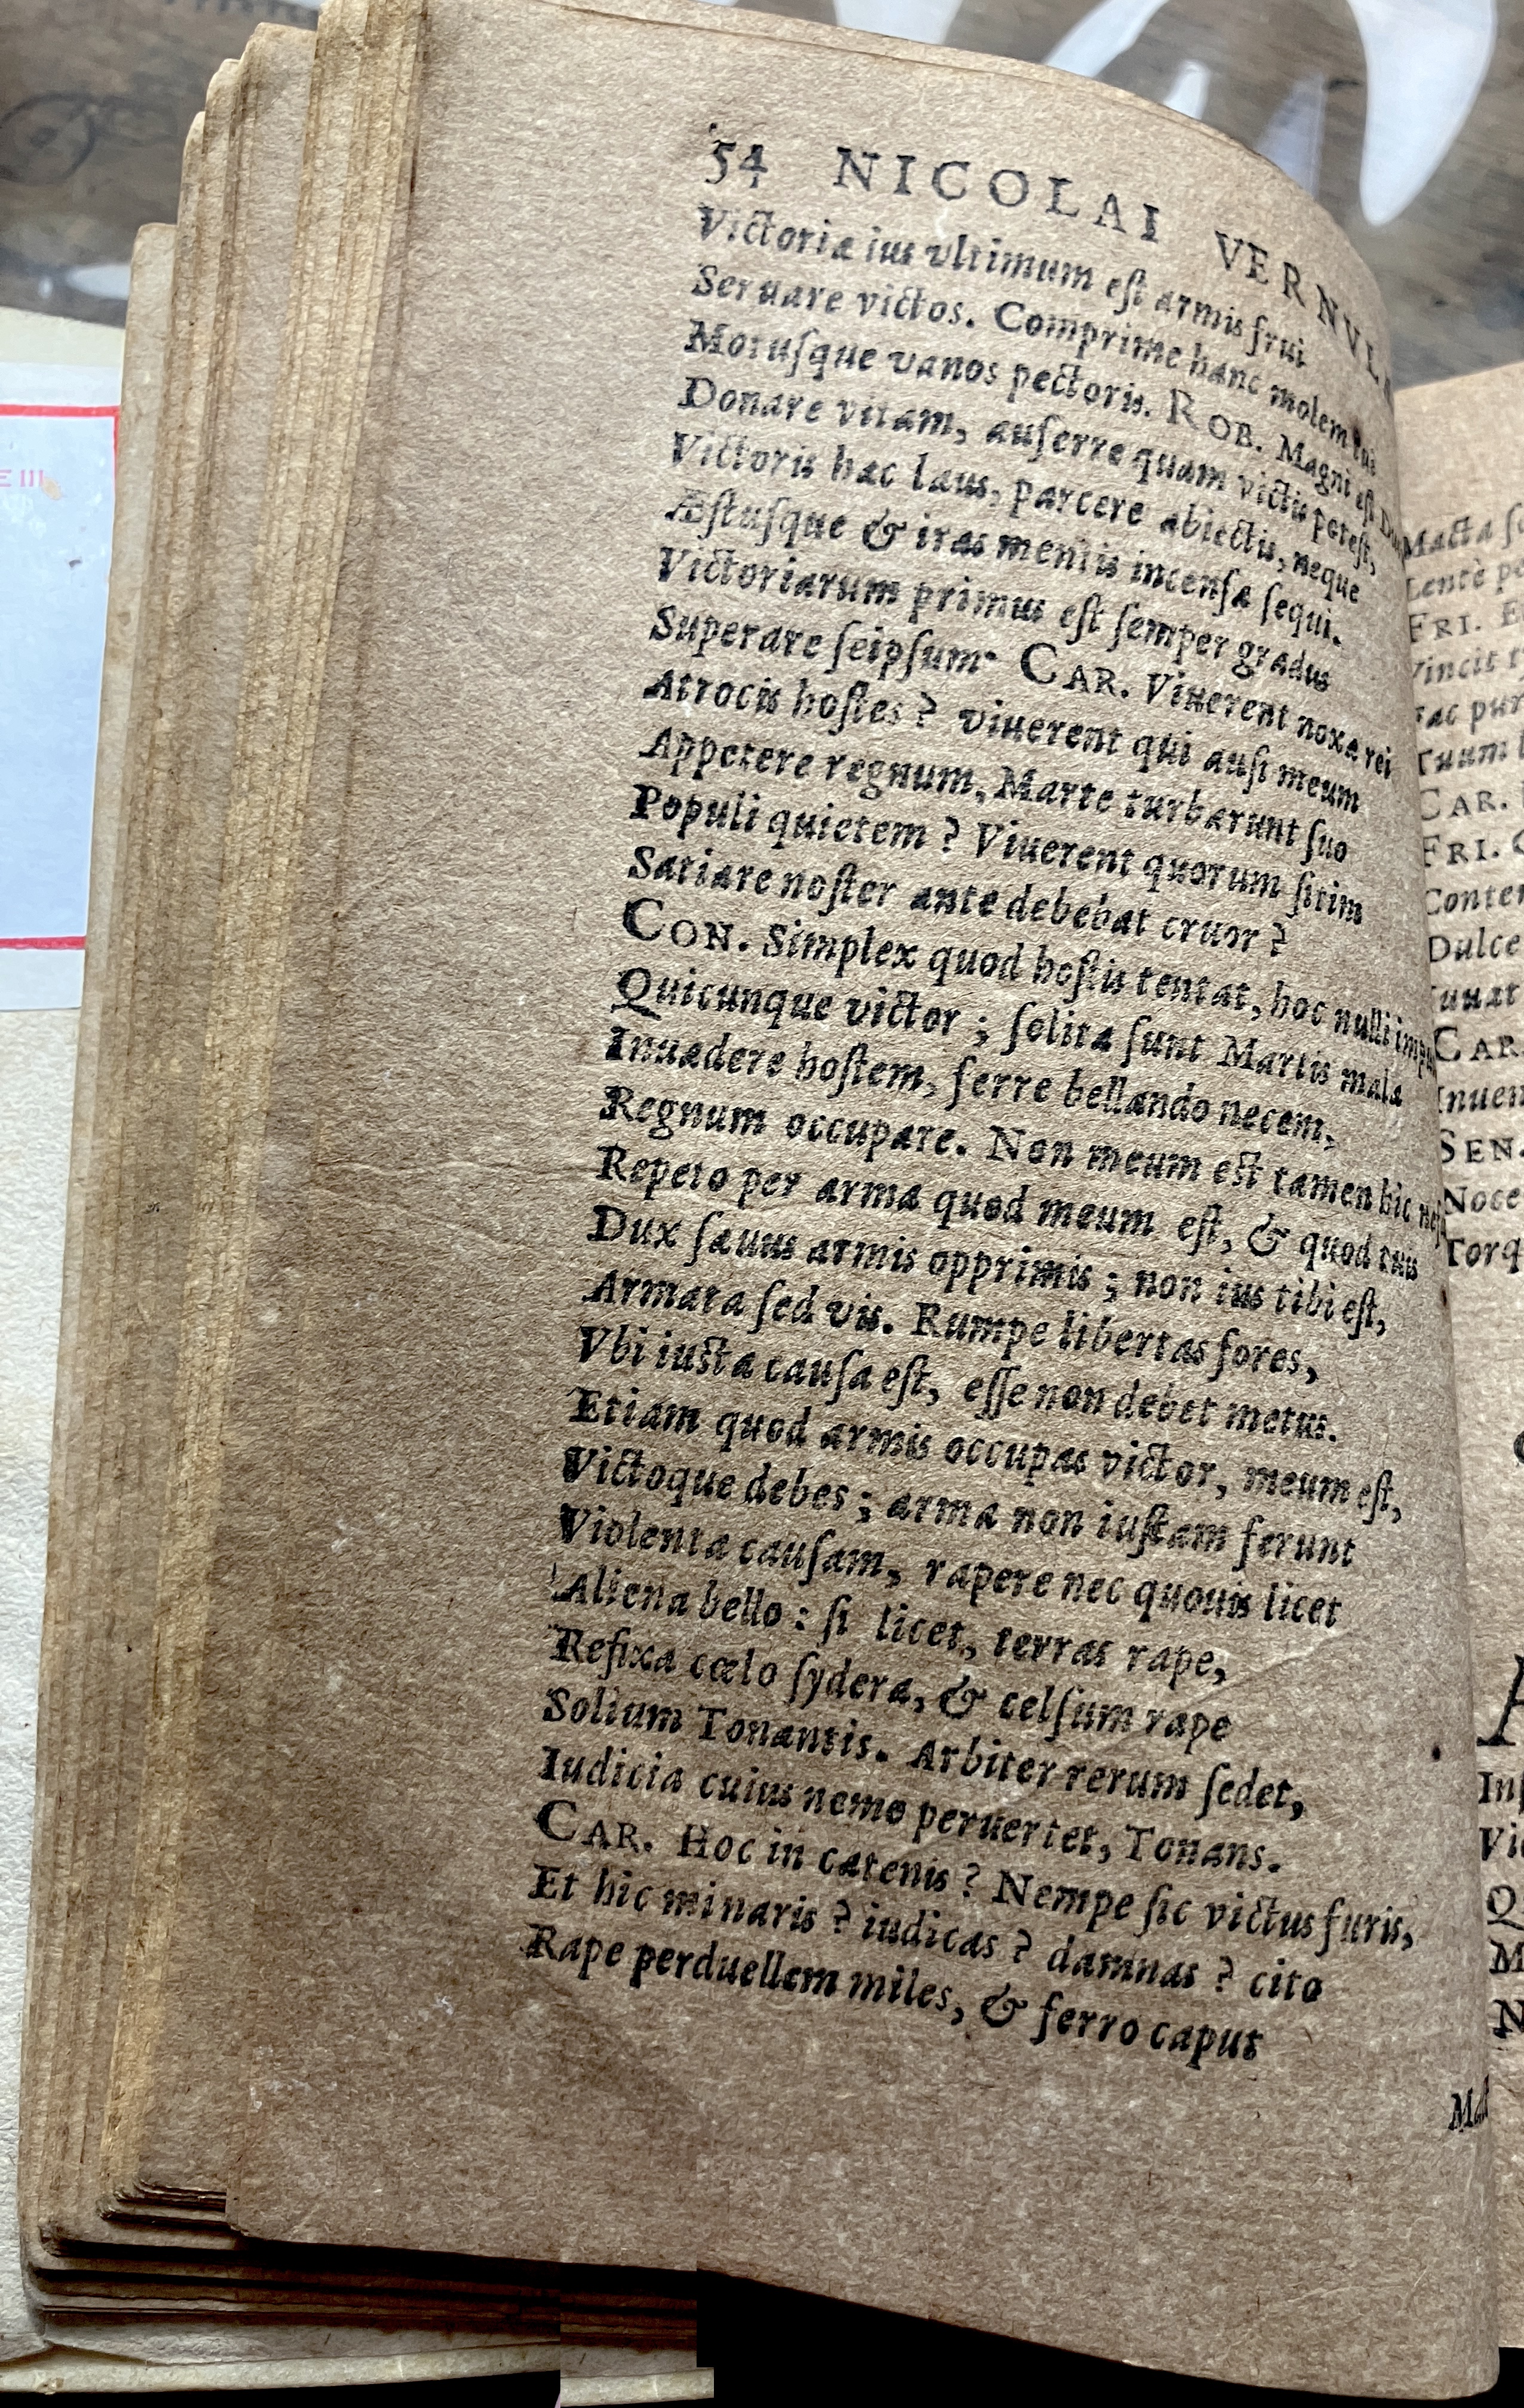 54 NICOLAI VERNVLÆ
Victoriæ ius vltimum est armis frui
Seruare victos. Comprime hanc molem tui
Motusque vanos pectoris. ROB. Magni est Ducis
Donare vitam, auferre quam victis potest,
Victoris hæc laus, parcere abiectis, neque
Æstusque & iras mentis incensæ sequi.
Victoriarum primus est semper gradus
Superare seipsum. CAR. Viuerent noxæ rei
Atrocis hostes? viuerent qui ausi meum
Appetere regnum, Marte turbarunt suo
Populi quietem? Viuerent quorum sitim
Satiare noster ante debebat cruor?
CON. Simplex quod hostis tentat, hoc nulli
Quicunque victor; solita sunt Martis mala
Inuadere hostem, ferre bellando necem,
Regnum occupare. Non meum est tamen hic
Repeto per arma quod meum est, & quod tuis
Dux sæuus armis opprimis; non ius tibi est,
Armata sed vis. Rumpe libertas fores,
Vbi iusta causa est, esse non debet metus.
Etiam quod armis occupas victor, meum est,
Victoque debes; arma non iustam ferunt
Violenta causam, rapere nec quouis licet
Aliena bello: si licet, terras rape,
Refixa cœlo sydera, & celsum rape
Solium Tonantis. Arbiter rerum sedet,
Iudicia cuius nemo peruertet, Tonans.
CAR. Hoc in catenis? Nempe sic victus furis,
Et hic minaris? iudicas? damnas? cito
Rape perduellem miles, & ferro caput
Macta
Lentè
FRI.
Vincit
Tuum
CAR.
FRI.
Dulce
CAR.
SEN.